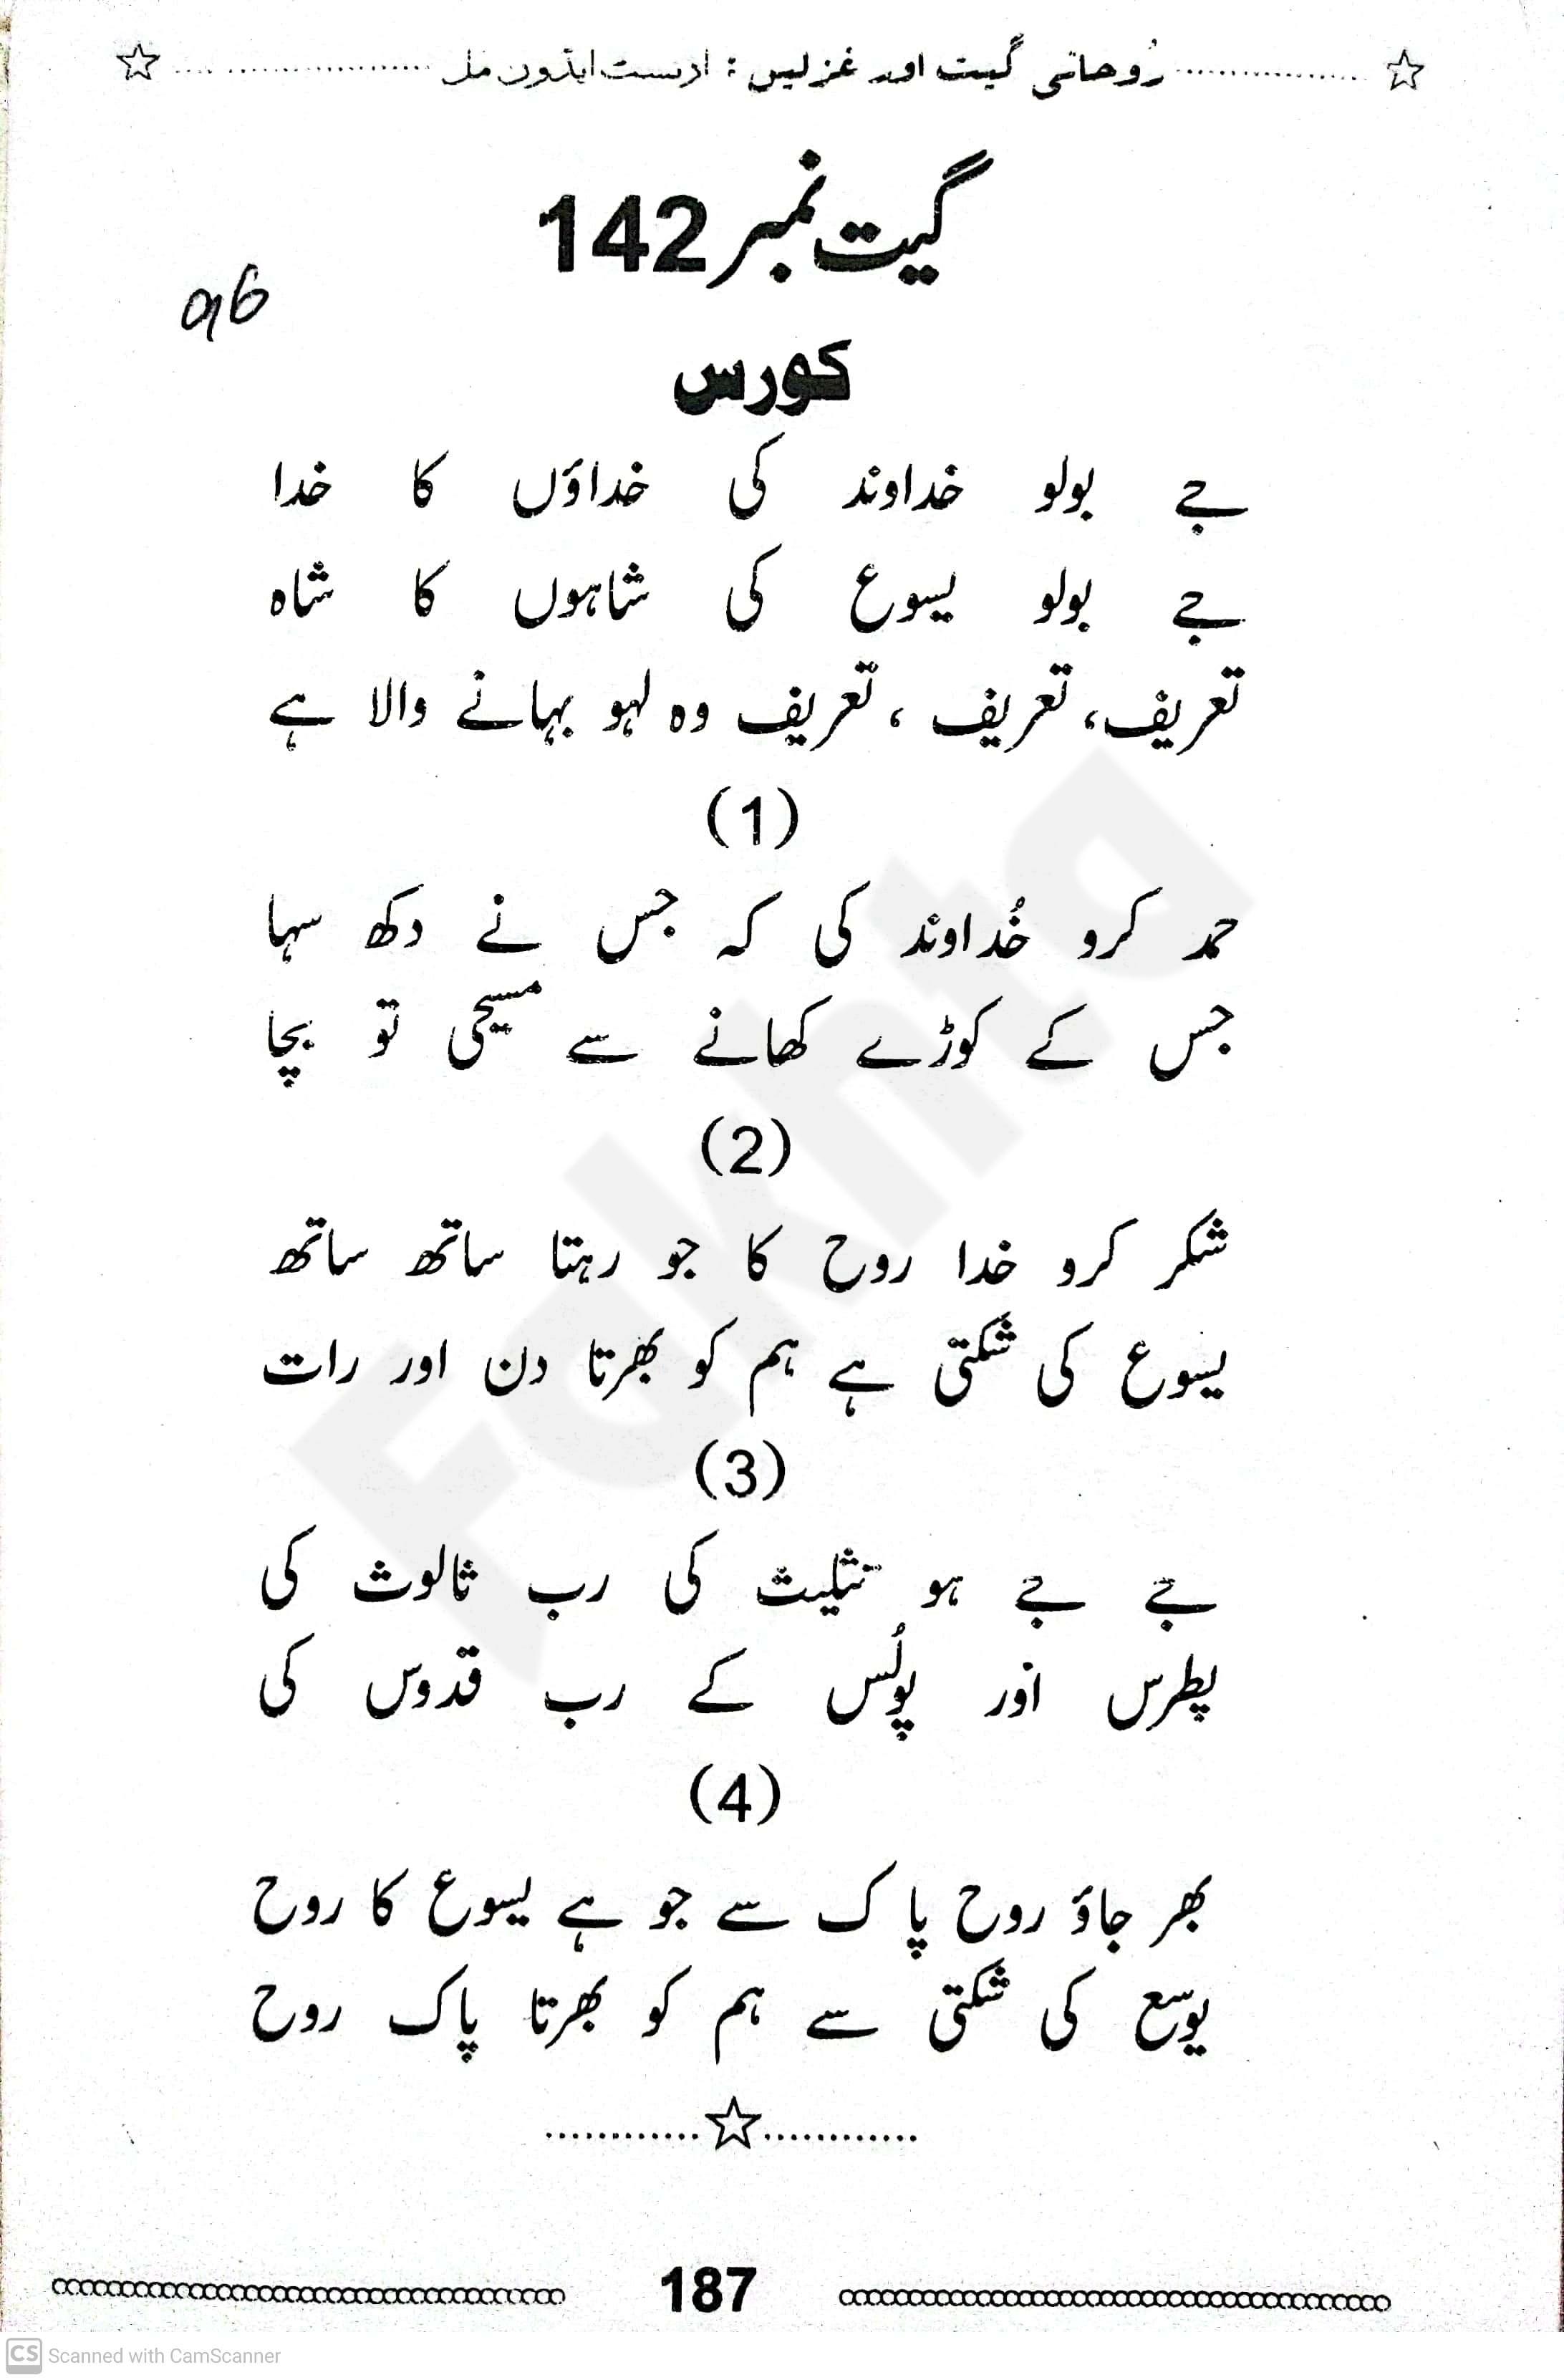 رُوحانی گیت اور غزلیں : ارنسٹ ایڈون مل
گیت نمبر 142
96
کورس
جے بولو خداوند کی خداؤں کا خدا
جے بولو یسوع کی شاہوں کا شاہ
تعریف، تعریف ، تعریف وہ لہو بہانے والا ہے
(1)
حمد کرو خُداوند کی کہ جس نے دکھ سہا
جس کے کوڑے کھانے سے مسیحی تو بچا
(2)
شکر کرو خدا روح کا جو رہتا ساتھ ساتھ
یسوع کی شکتی ہے ہم کو بھرتا دن اور رات
(3)
جے جے ہو تثلیث کی رب ثالوث کی
پطرس اور پولُس کے رب قدوس کی
(4)
بھر جاؤ روح پاک سے جو ہے یسوع کا روح
یوسّع کی شکتی سے ہم کو بھرتا پاک روح
187
Fakhta
CS Scanned with CamScanner